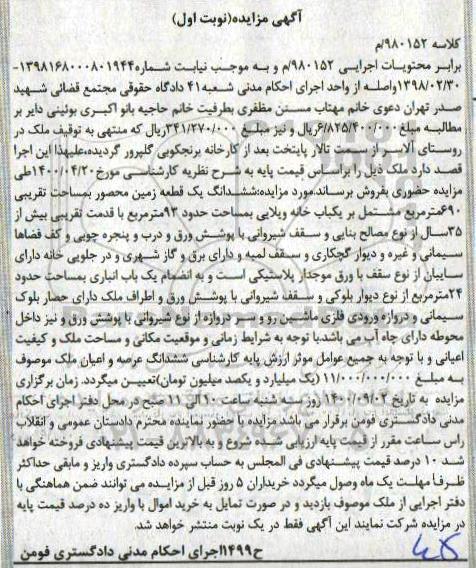 آگهی مزایده(نوبت اول)
کلاسه ۹۸۰۱۵۲/م
برابر محتویات اجرایی ۹۸۰۱۵۲/م و به موجب نیابت شماره۱۳۹۸۱۶۸۰۰۰۸۰۱۹۴۴-
۱۳۹۸/۰۲/۳۰واصله از واحد اجرای احکام مدنی شعبه۴۱ دادگاه حقوقی مجتمع قضائی شهید
صدر تهران دعوی خانم مهتاب مسنن مظفری بطرفیت خانم حاجیه بانو اکبری بوئینی دایر بر
مطالبه مبلغ۶/۸۲۵/۴۰۰/۰۰۰ریال و نیز مبلغ ۳۴۱/۲۷۰/۰۰۰ریال که منتهی به توقیف ملک در
روستای آلاسر از سمت تالار پایتخت بعد از کارخانه برنجکوبی گلپرور گردیده،علیهذا این اجرا
قصد دارد ملک ذیل را براساس قیمت پایه به شرح نظریه کارشناسی مورخ۱۴۰۰/۰۴/۲۰طی
مزایده حضوری بفروش برساند.مورد مزایده:ششدانگ یک قطعه زمین محصور بمساحت تقریبی
۶۹۰مترمربع مشتمل بر یکباب خانه ویلایی بمساحت حدود ۹۳مترمربع با قدمت تقریبی بیش از
۳۵سال از نوع مصالح بنایی و سقف شیروانی با پوشش ورق و درب و پنجره چوبی و کف فضاها
سیمانی و غیره و دیوار گچکاری و سقف لمبه و دارای برق و گاز شهری و در جلویی خانه دارای
سایبان از نوع سقف با ورق موجدار پلاستیکی است و به انضمام یک باب انباری بمساحت حدود
۲۴مترمربع از نوع دیوار بلوکی و سقف شیروانی با پوشش ورق و اطراف ملک دارای حصار بلوک
سیمانی و دروازه ورودی فلزی ماشین رو و سر دروازه از نوع شیروانی با پوش ورق و نیز داخل
محوطه دارای چاه آب می باشد.با توجه به شرایط زمانی و موقعیت مکانی و مساحت ملک و کیفیت
اعیانی و با توجه به جمیع عوامل موثر ارزش پایه کارشناسی ششدانگ عرصه و اعیان ملک موصوف
به مبلغ ۱۱/۰۰۰/۰۰۰/۰۰۰ (یک میلیارد و یکصد میلیون تومان)تعیین میگردد. زمان برگزاری
مزایده به تاریخ ۱۴۰۰/۰۹/۰۲ روز سه شنبه ساعت ۱۰ الی ۱۱ صبح در محل دفتر اجرای احکام
مدنی دادگستری فومن برقرار می باشد.مزایده با حضور نماینده محترم دادستان عمومی و انقلاب
راس ساعت مقرر از قیمت پایه ارزیابی شده شروع و به بالاترین قیمت پیشنهادی فروخته خواهد
شد ۱۰ درصد قیمت پیشنهادی فی المجلس به حساب سپرده دادگستری واریز و مابقی حداکثر
ظرف مهلت یک ماه وصول میگردد خریداران ۵ روز قبل از مزایده می توانند ضمن هماهنگی با
دفتر اجرایی از ملک موصوف بازدید و در صورت تمایل به خرید اموال با واریز ده درصد قیمت پایه
در مزایده شرکت نمایند این آگهی فقط در یک نوبت منتشر خواهد شد.
ح۱۴۹۹اجرای احکام مدنی دادگستری فومن